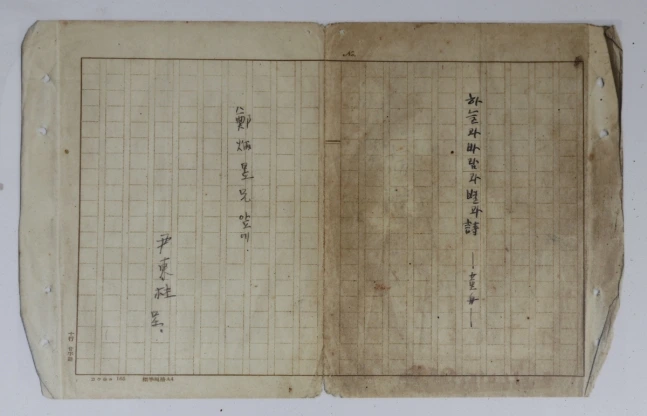 No.
하늘과 바람과 별과 詩
鄭炳昱兄 앞에.
尹東柱 呈.